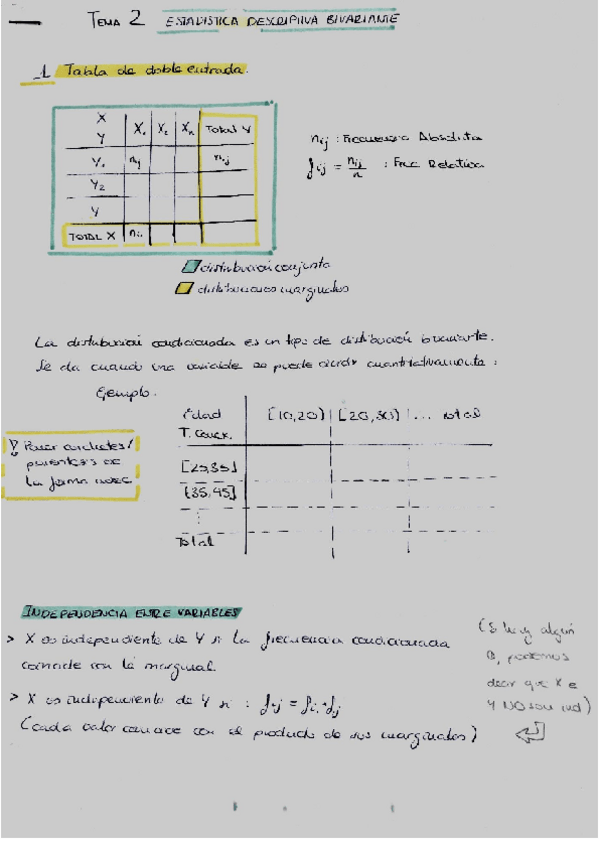 TEMA 2 ESTADISTICA DESCRIPTIVA BIVARIANTE
1 Tabla de doble entrada.
X
Y
X₁ X₂ Xₙ Total Y
Y₁ nij
Y₂
Y
TOTAL X
nij : Frecuencia Absoluta
fij = nij/n : Frec Relativa
distribución conjunta
distribuciones marginales
La distribución condicionada es un tipo de distribución bivariante.
Se da cuando una variable se puede dividir cuantitativamente :
Ejemplo.
Edad [10,20) [20,30) ... total
[25,35]
[35,45]
Total
! Poner corchetes/
paréntesis de
la forma
INDEPENDENCIA ENTRE VARIABLES
> X es independiente de Y si la frecuencia condicionada
coincide con la marginal.
> X es independiente de Y si : fij = fi. · f.j
(cada valor con el producto de sus marginales)
(Si hay algún
0, podemos
decir que X e
Y NO son ind)